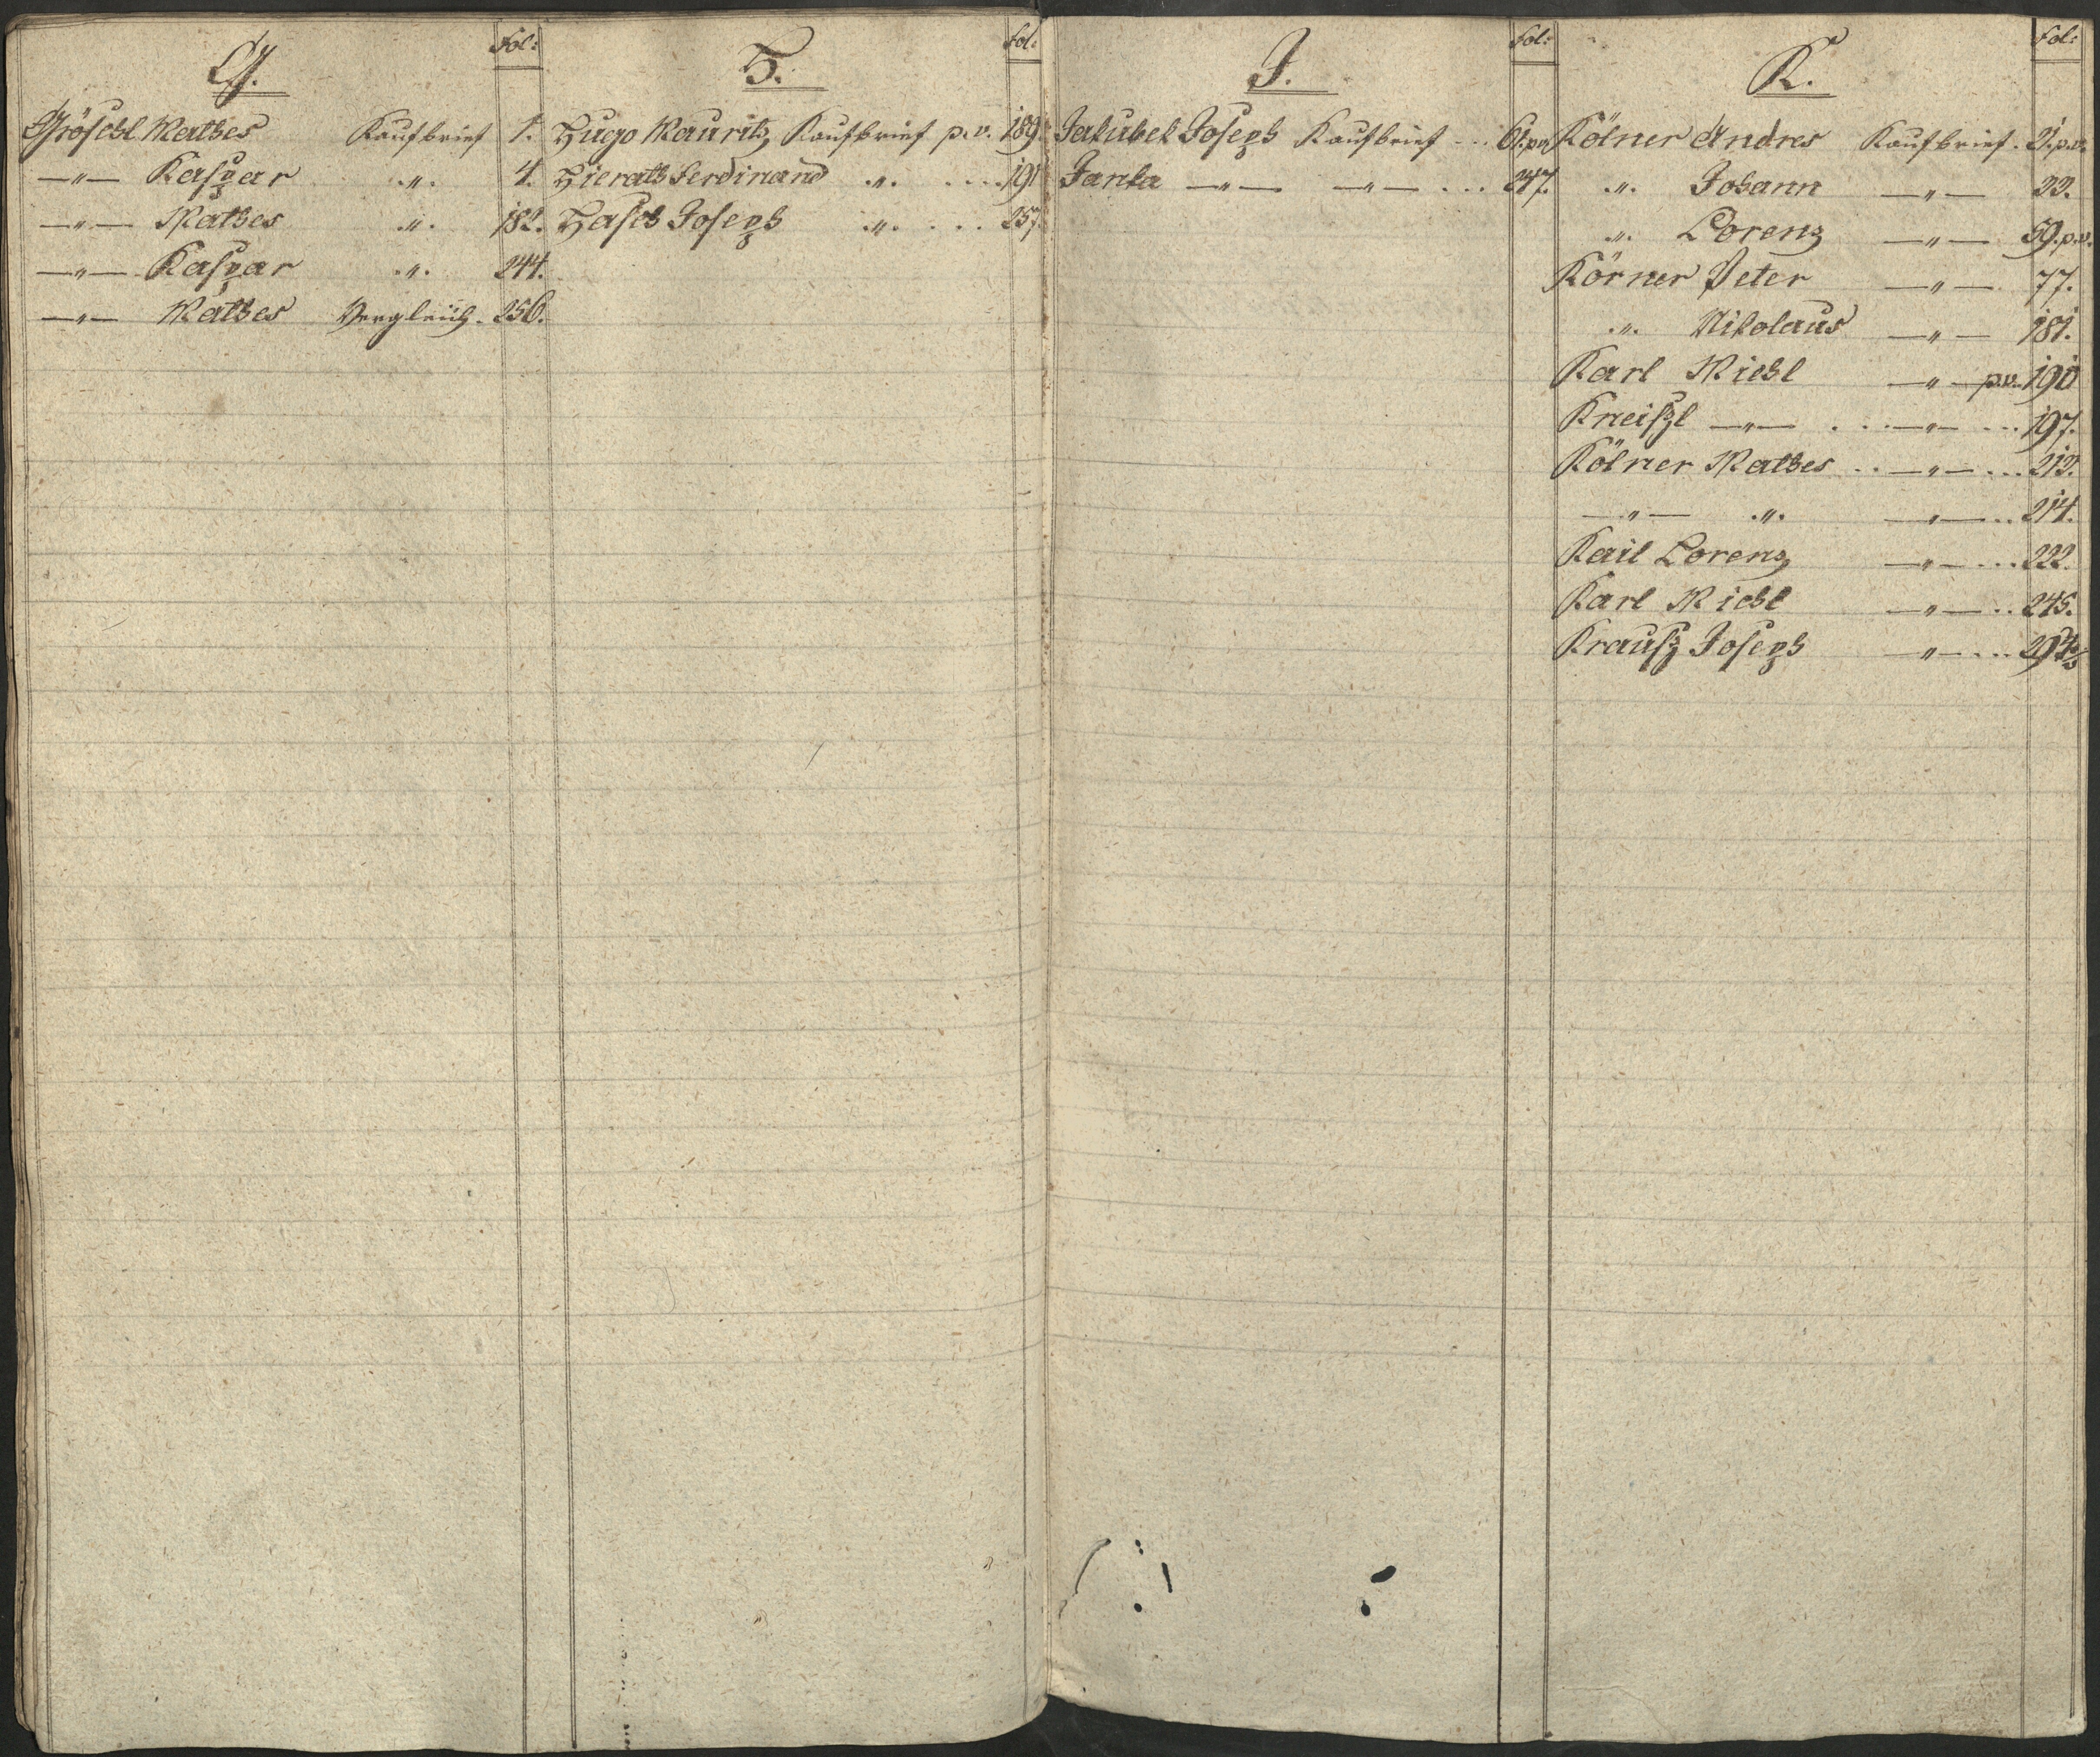 G. Fol:
Gröschl Mathes Kaufbrief 1.
—"— Kaspar .". 4.
—"— Mathes .". 182.
—"— Kaspar .". 244.
—"— Mathes Vergleich. 256.
H. Fol:
Hugo Mauritz Kaufbrief p. v. 189.
Hierath Ferdinand .". .... 191
Hasch Joseph .". ... 257.
J. Fol:
Jakubek Joseph Kaufbrief ... 61. p v.
Janka —"— —"— ... 247.
K. Fol:
Kölner Andres Kaufbrief. 21. p. v.
.". Johann —"— 22.
.". Lorenz —"— 59. p. v.
Körner Peter —"— 77.
.". Nikolaus —"— 181.
Karl Michl —"— p. v. 190
Kneißl —"— ...—"— ... 197.
Kölner Mathes ..—"—... 212.
—"— .". —"—.. 214.
Kail Lorenz —"—... 222.
Karl Michl —"—.. 245.
Krauß Joseph —"—...